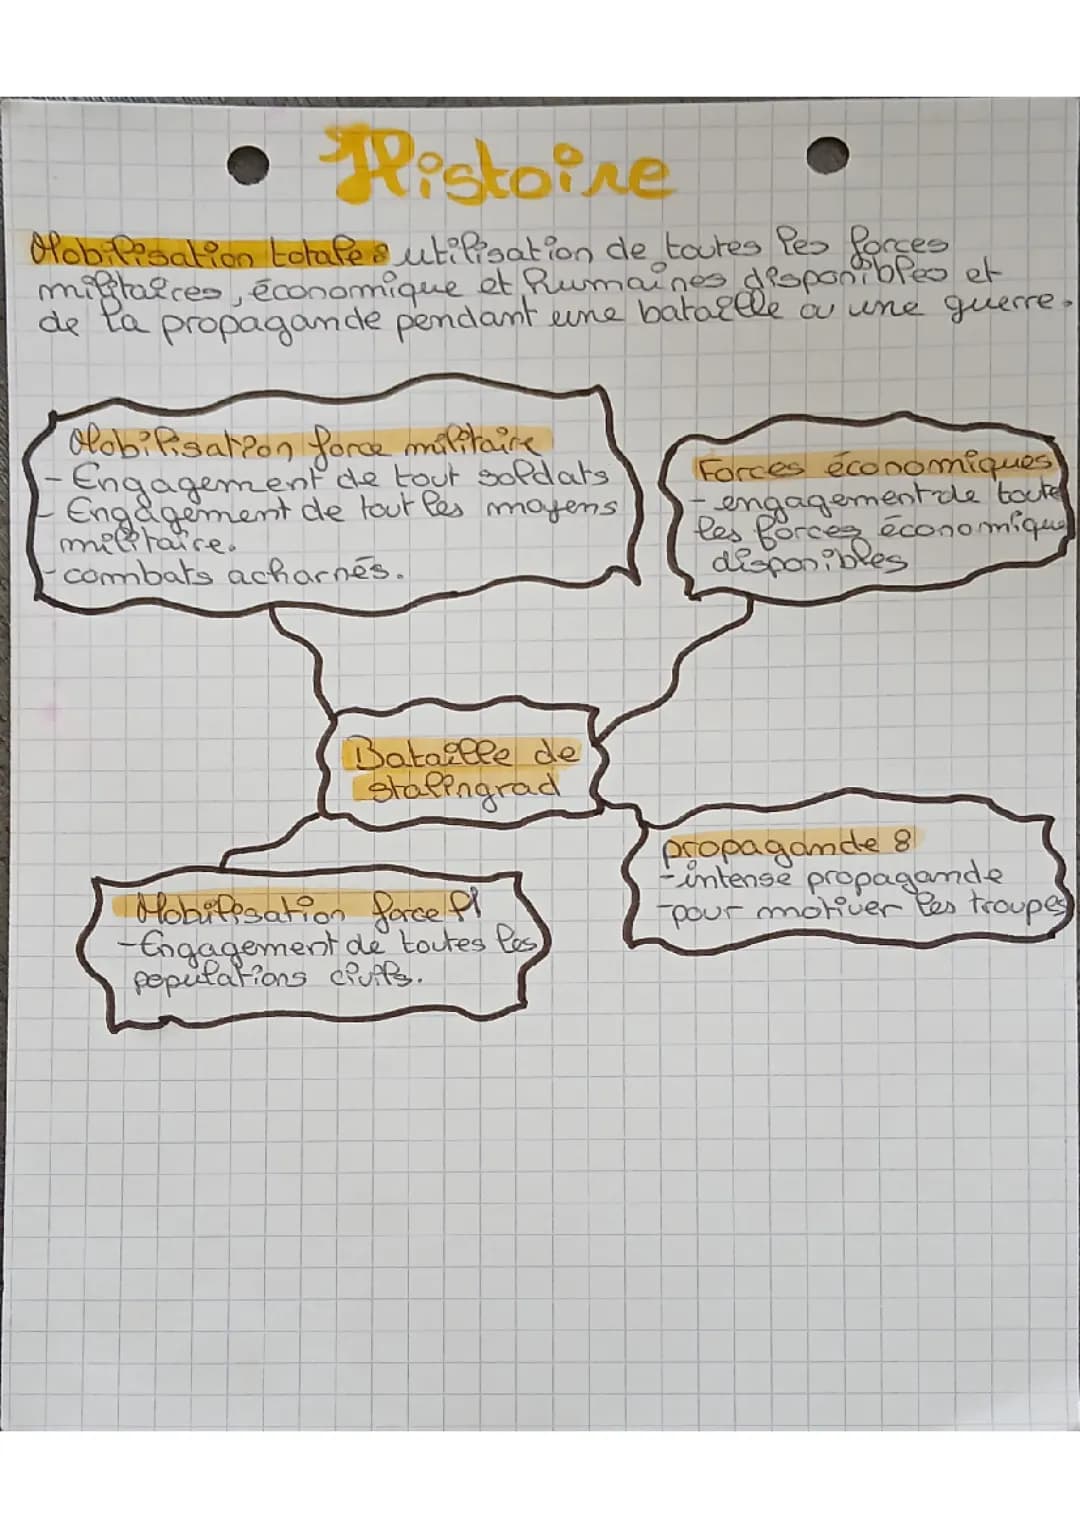 Histoire
Mobilisation totale : utilisation de toutes les forces
militaires, économique et humaines disponibles et
de la propagande pendant une bataille ou une guerre.
Mobilisation force militaire
- Engagement de tout soldats
- Engagement de tout les moyens
militaire.
- combats acharnés.
Forces économiques
- engagement de toute
les forces économique
disponibles
Bataille de
stalingrad
propagande :
- intense propagande
- pour motiver les troupes
Mobilisation force H
- Engagement de toutes les
populations civils.